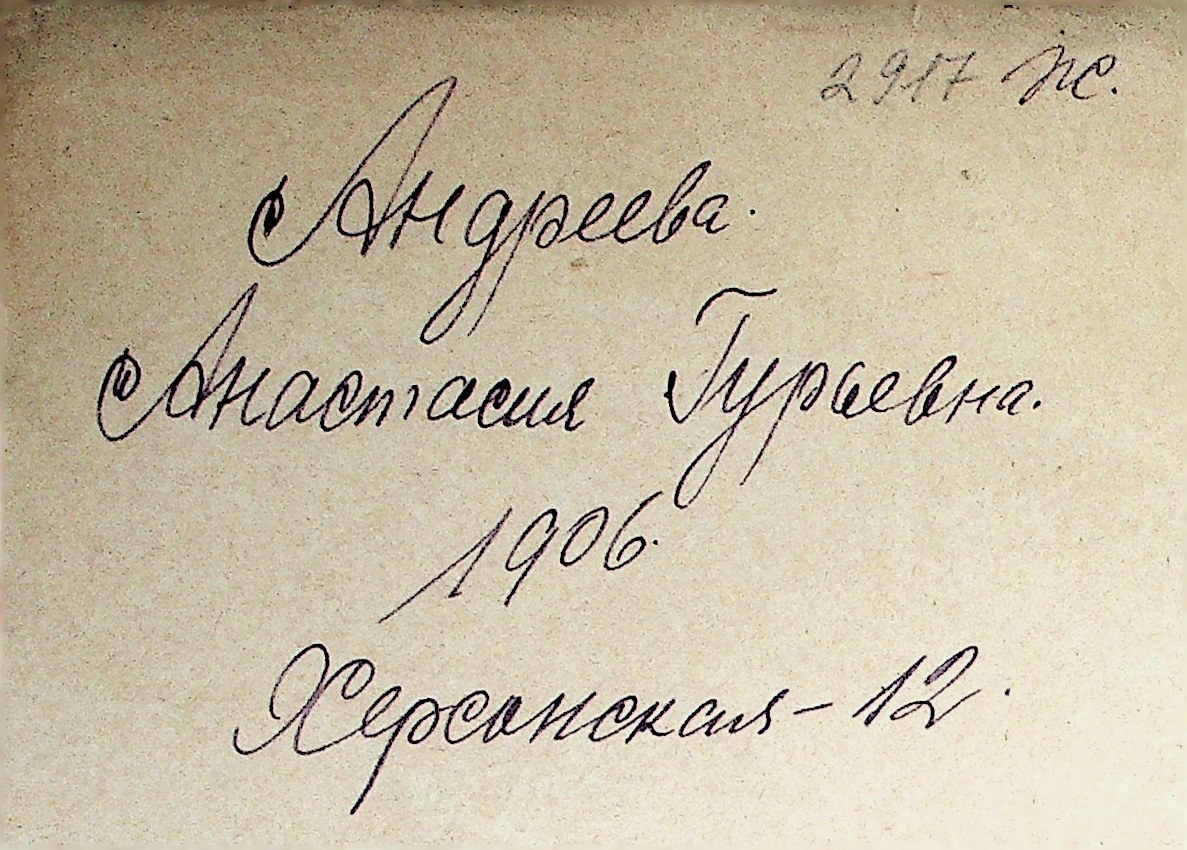 2917 ж.
Андреева.
Анастасия Гурьевна.
1906.
Херсонская – 12.